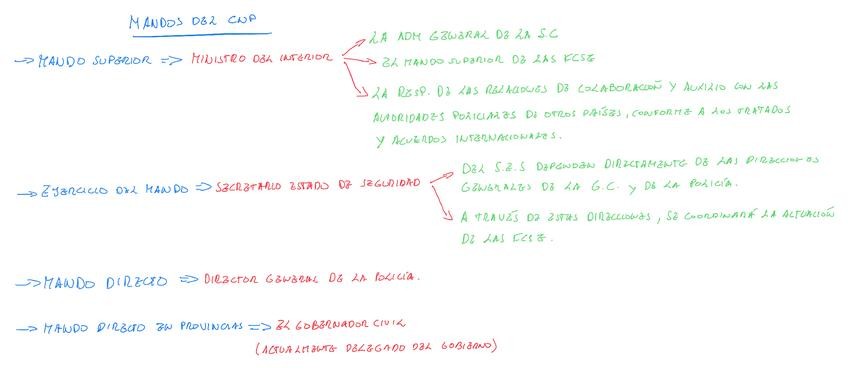 MANDOS DEL CNP
→ MANDO SUPERIOR => MINISTRO DEL INTERIOR
LA ADM GENERAL DE LA S.C
EL MANDO SUPERIOR DE LAS FCSE
LA RESP. DE LAS RELACIONES DE COLABORACIÓN Y AUXILIO CON LAS
AUTORIDADES POLICIALES DE OTROS PAÍSES, CONFORME A LOS TRATADOS
Y ACUERDOS INTERNACIONALES.
→ EJERCICIO DEL MANDO => SECRETARIO ESTADO DE SEGURIDAD
DEL S.E.S DEPENDEN DIRECTAMENTE DE LAS DIRECCIONES
GENERALES DE LA G.C. Y DE LA POLICÍA.
A TRAVÉS DE ESTAS DIRECCIONES, SE COORDINARÁ LA ACTUACIÓN
DE LAS FCSE.
→ MANDO DIRECTO => DIRECTOR GENERAL DE LA POLICÍA.
→ MANDO DIRECTO EN PROVINCIAS => EL GOBERNADOR CIVIL
(ACTUALMENTE DELEGADO DEL GOBIERNO)